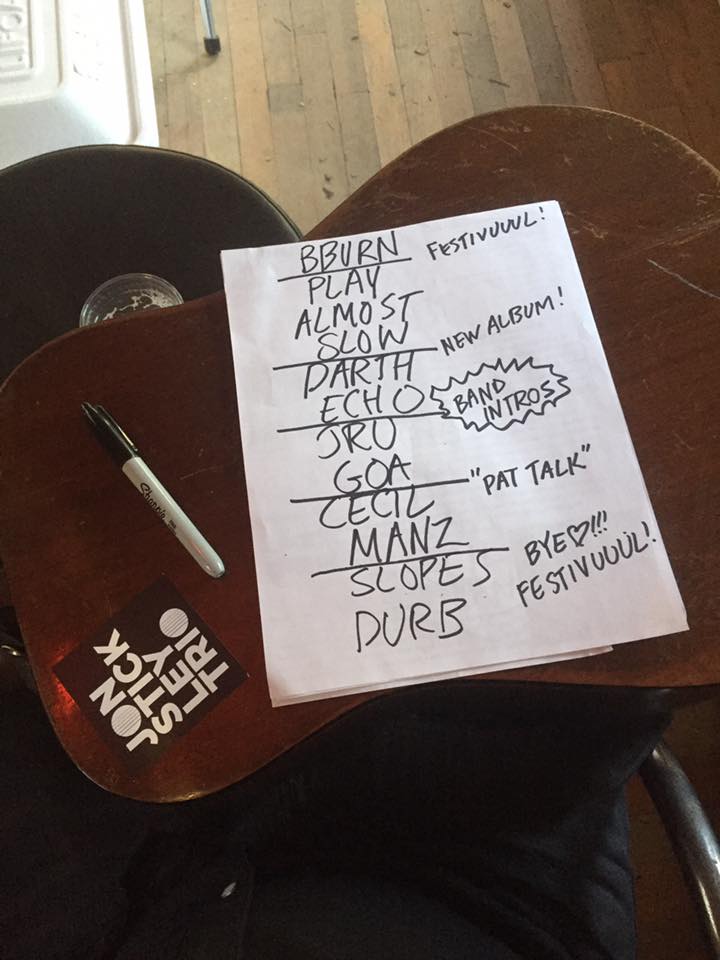 BBURN
FESTIVUUUL!
PLAY
ALMOST
SLOW
NEW ALBUM!
DARTH
ECHO
BAND
INTROS
JRU
GOA
"PAT TALK"
CECIL
MANZ
BYE♡!!!
SLOPES
FESTIVUUUL!
DURB
Sharpie
JON
STICK
LEY
TRIO